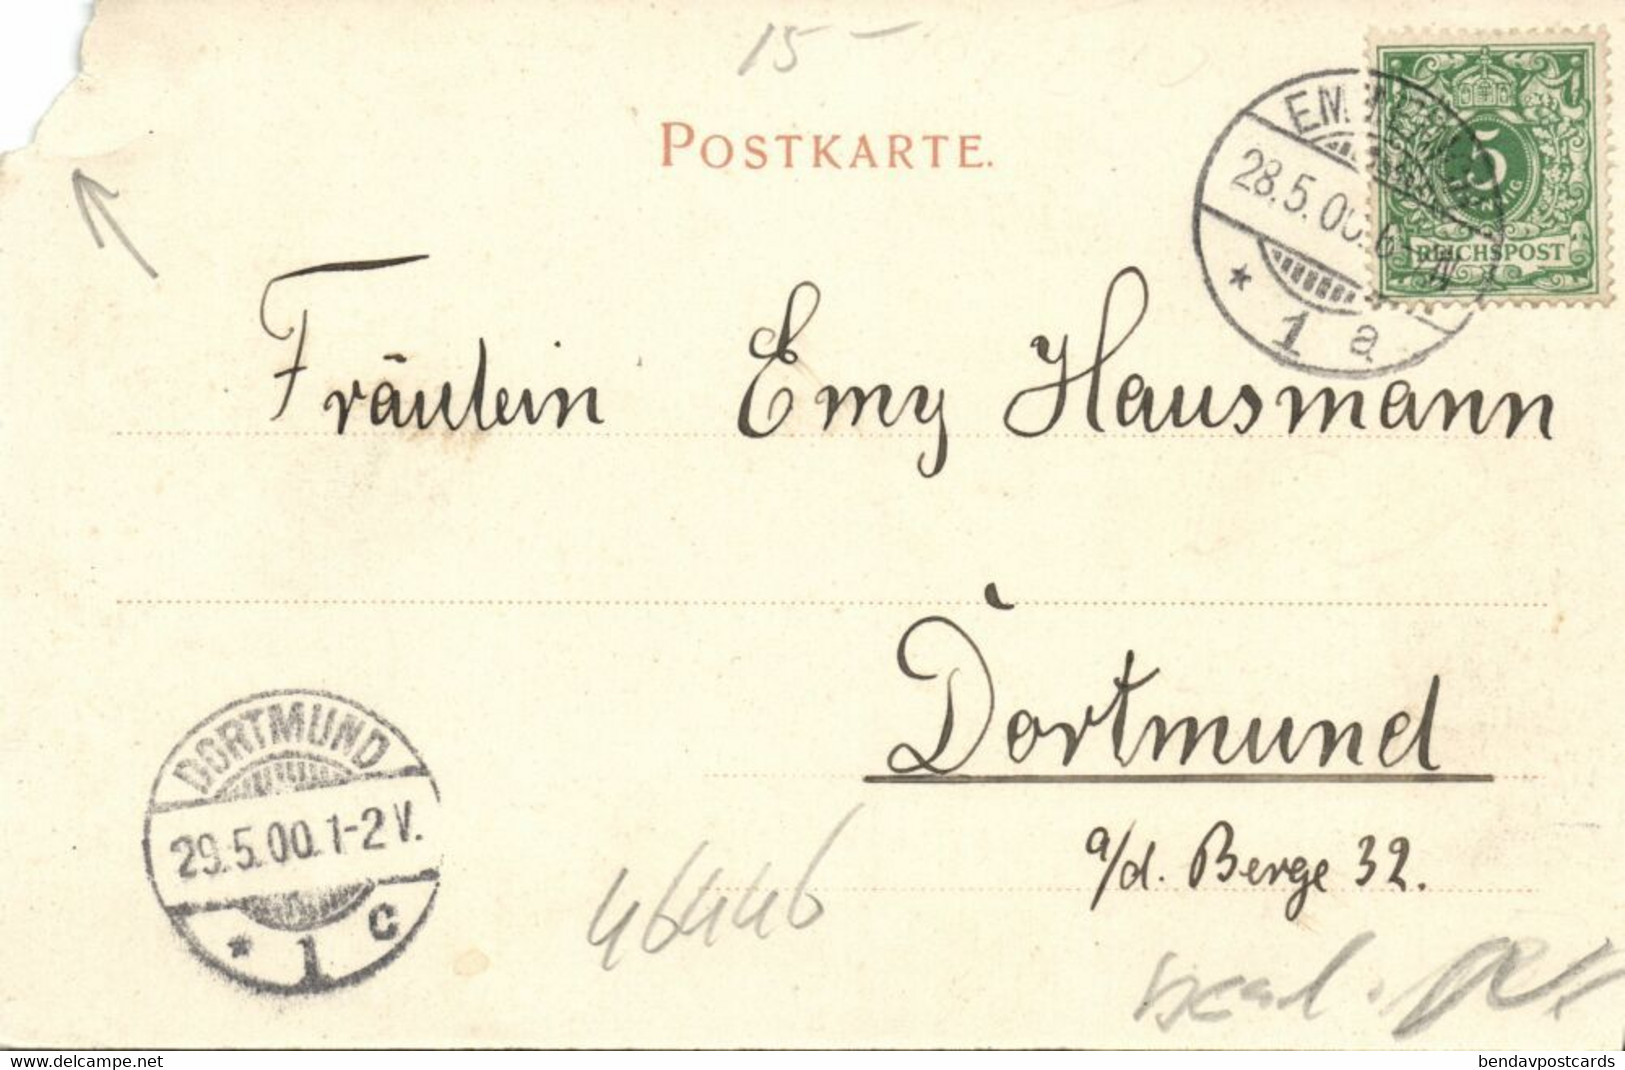 15 —
POSTKARTE.
28.5.00. 6-7N
1 a
5
REICHSPOST
Fräulein Emy Hausmann
Dortmund
a/d. Berge 32.
DORTMUND
29.5.00. 1-2 V.
* 1 c
46446
delcampe.net
bendavpostcards